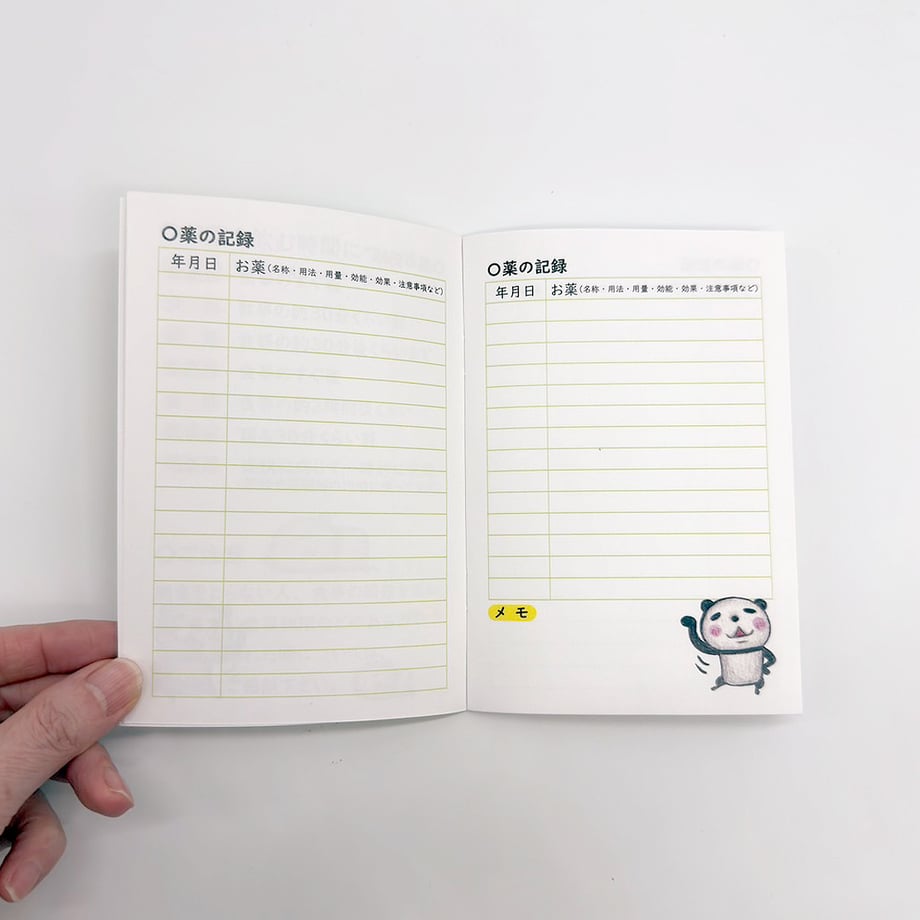 〇薬の記録
年月日 お薬(名称・用法・用量・効能・効果・注意事項など)
〇薬の記録
年月日 お薬(名称・用法・用量・効能・効果・注意事項など)
メモ